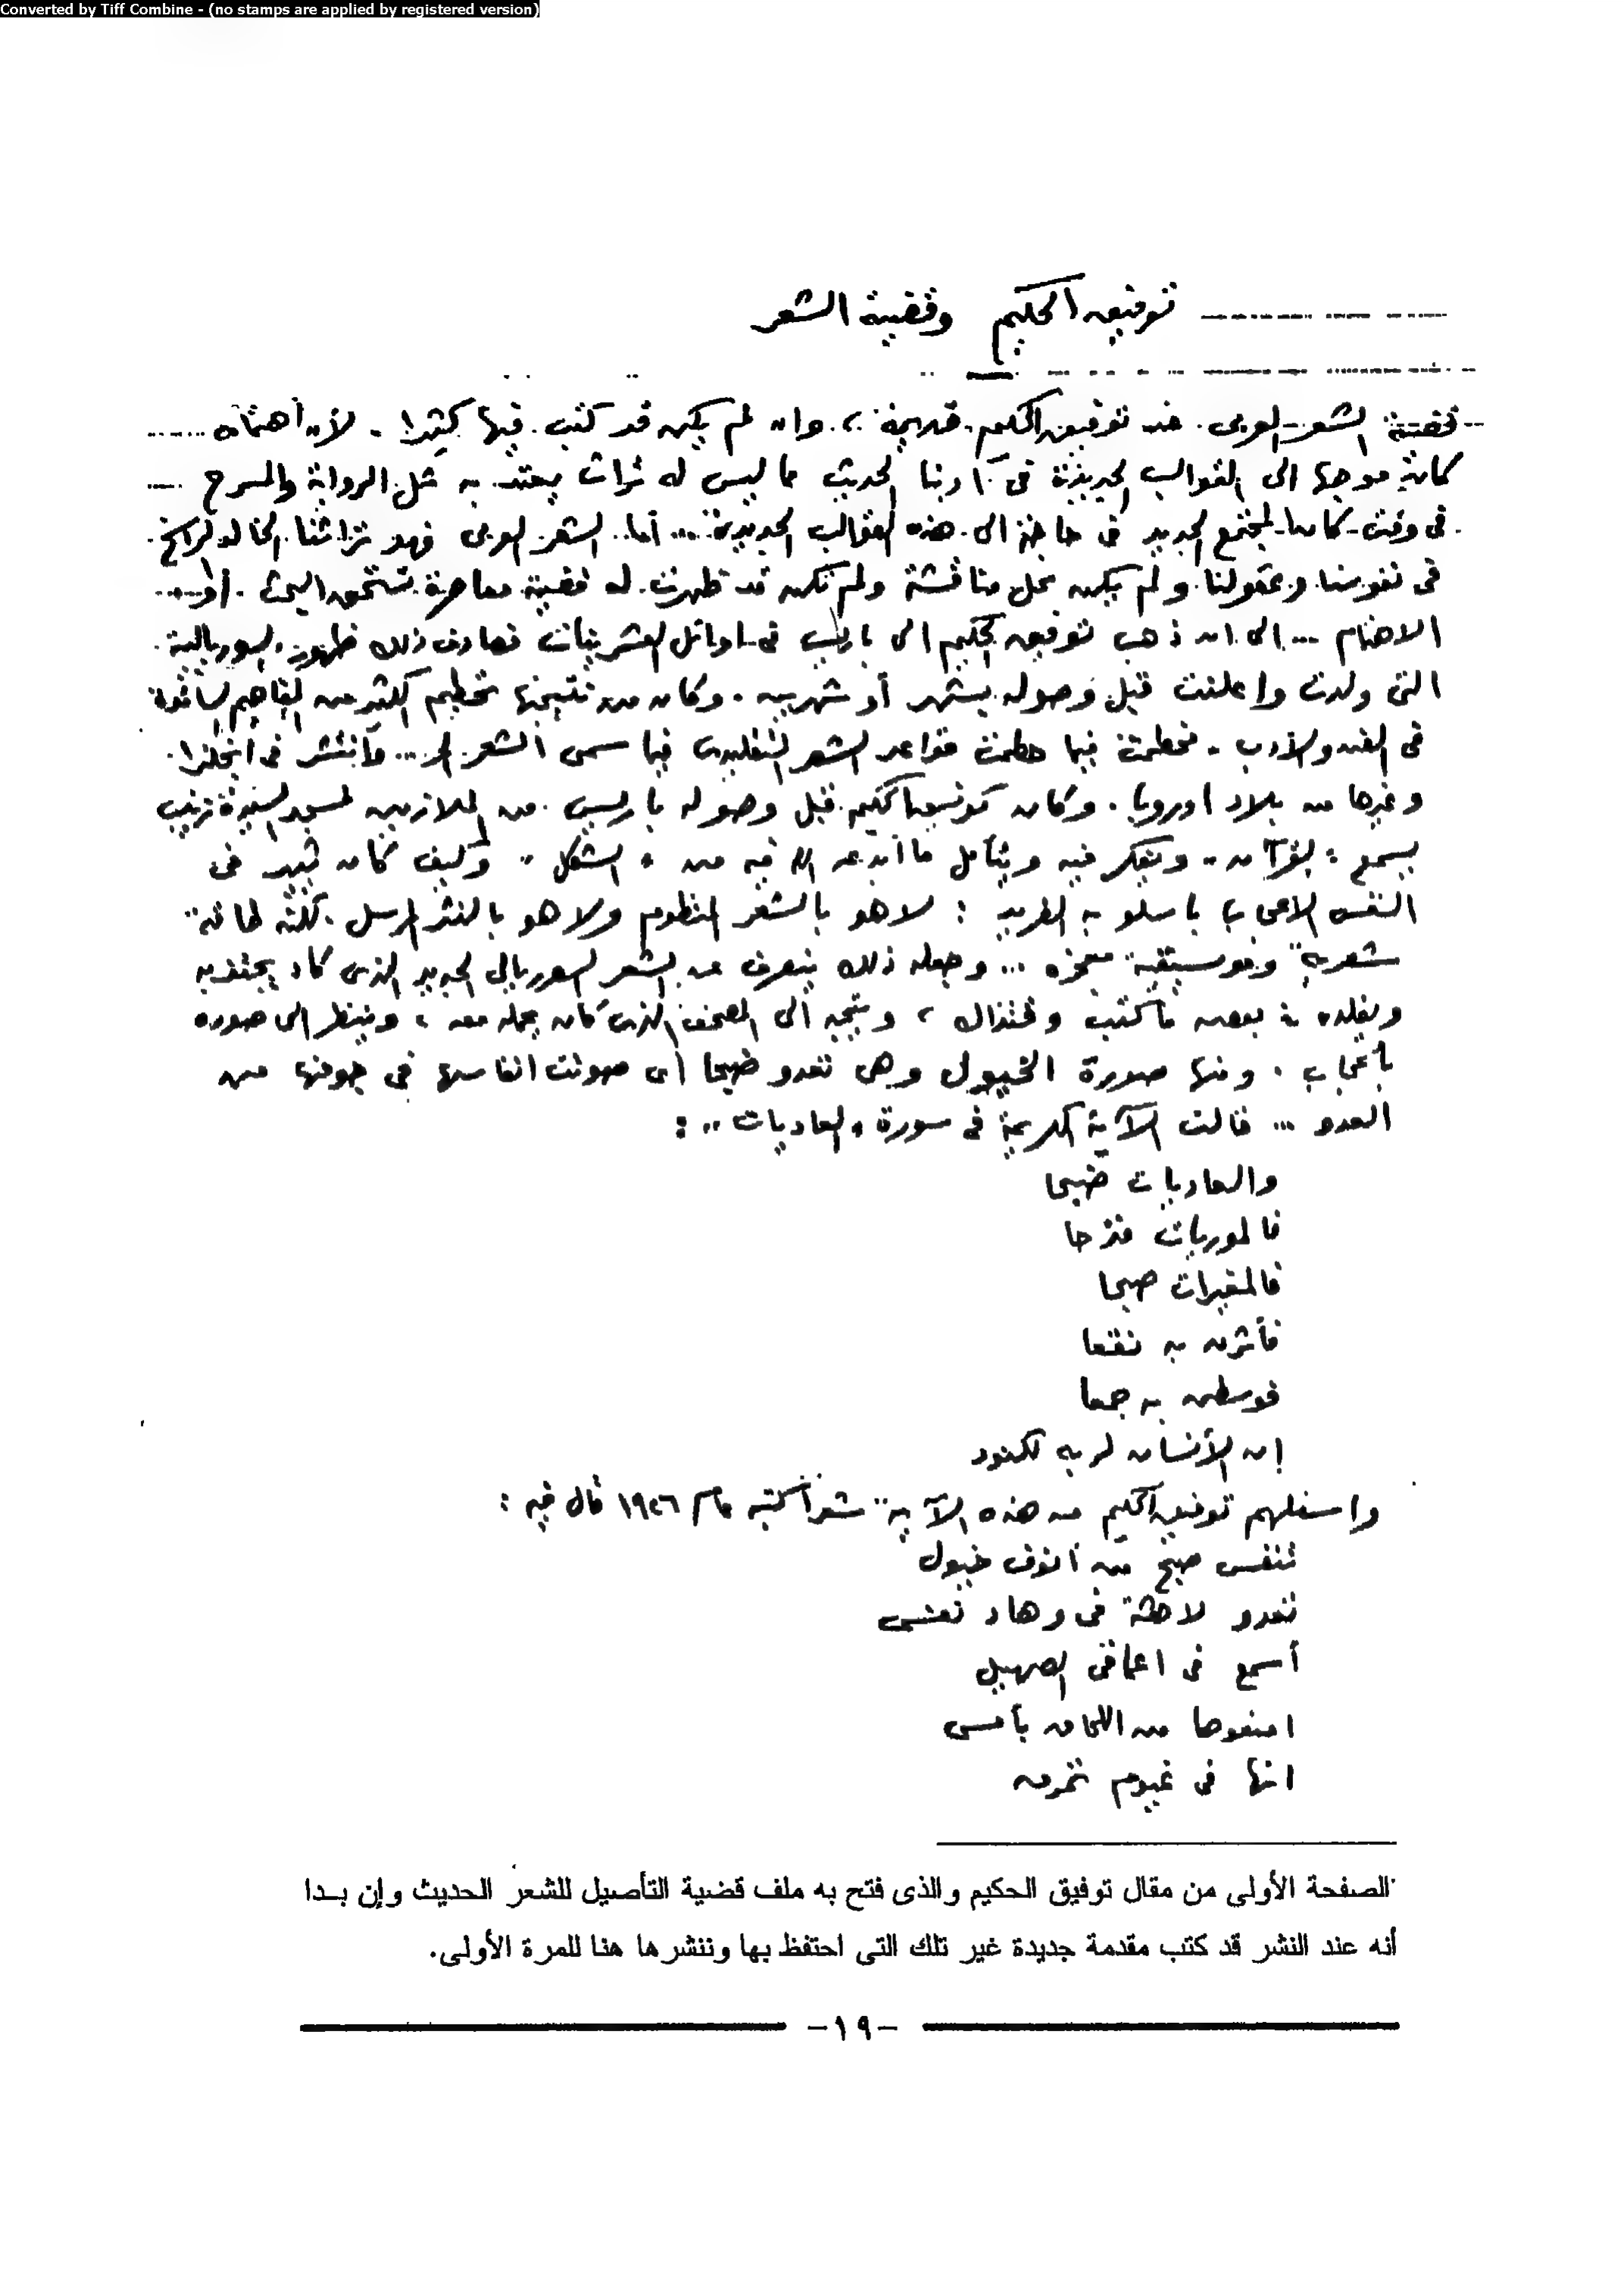 Converted by Tiff Combine - (no stamps are applied by registered version)
توفيق الحكيم وقضية الشعر
قضية الشعر العربى عند توفيق الحكيم قديمة، وان لم يكن قد كتب فيها كثيرا. لأن اهتمامه
كان موجها الى القوالب الجديدة فى أدبنا الحديث مما ليس له تراث يعتد به مثل الرواية والمسرح
فى وقت كان المجتمع الجديد فى حاجة الى هذه القوالب الجديدة ... أما الشعر العربى فهو تراثنا الخالد الراسخ
فى نفوسنا وعقولنا ولم يكن محل مناقشة ولم تكن قد ظهرت له قضية معاصرة تستحق البحث أو
الاهتمام ... الى ان ذهب توفيق الحكيم الى باريس فى اوائل العشرينات فصادف ذلك ظهور السوريالية
التى ولدت واعلنت قبل وصوله بشهر أو شهرين. وكان من نتيجتها تحطيم الكثير من المفاهيم السائدة
فى الفن والأدب. فحطمت فيما حطمت قواعد الشعر التقليدى فيما سمى الشعر الحر ... وانتشر فى انجلترا
وغيرها من بلاد اوروبا. وكان توفيق الحكيم قبل وصوله باريس من الملازمين لمسجد السيدة زينب
يسمع "القرآن" ويفكر فيه ويتأمل ما أبدعه الله فيه من "الشكل" وكيف كان يثير فى
النفس الاعجاب باسلوبه الفريد: لا هو بالشعر المنظوم ولا هو بالنثر المرسل. لكنه طاقة
شعرية وموسيقية معجزة ... وجعله ذلك يتعرف عن الشعر السوريالى الجديد الذى كاد يجتذبه
ويقلده فى بعض ما كتب وقتذاك، ويتجه الى المصحف الذى كان يحمله معه، وينظر الى صوره
باعجاب. ومنها صورة الخيول وهى تعدو ضبحا أى صوت انفاسها فى جوفها من
العدو ... قالت الآية الكريمة فى سورة "العاديات":
والعاديات ضبحا
فالموريات قدحا
فالمغيرات صبحا
فأثرن به نقعا
فوسطن به جمعا
إن الأنسان لربه لكنود
واستلهم توفيق الحكيم من هذه الآية شعرا كتبه عام ١٩٢٦ قال فيه:
تنفس صبح من أنوف خيول
تعدو لاهثة فى وهاد نفسى
أسمع فى اعماقى الصهيل
امنعوها من اللحاق بأمسى
انها فى غيوم تمرق
الصفحة الأولى من مقال توفيق الحكيم والذى فتح به ملف قضية التأصيل للشعر الحديث وإن بـدا
أنه عند النشر قد كتب مقدمة جديدة غير تلك التى احتفظ بها وننشرها هنا للمرة الأولى.
-١٩-